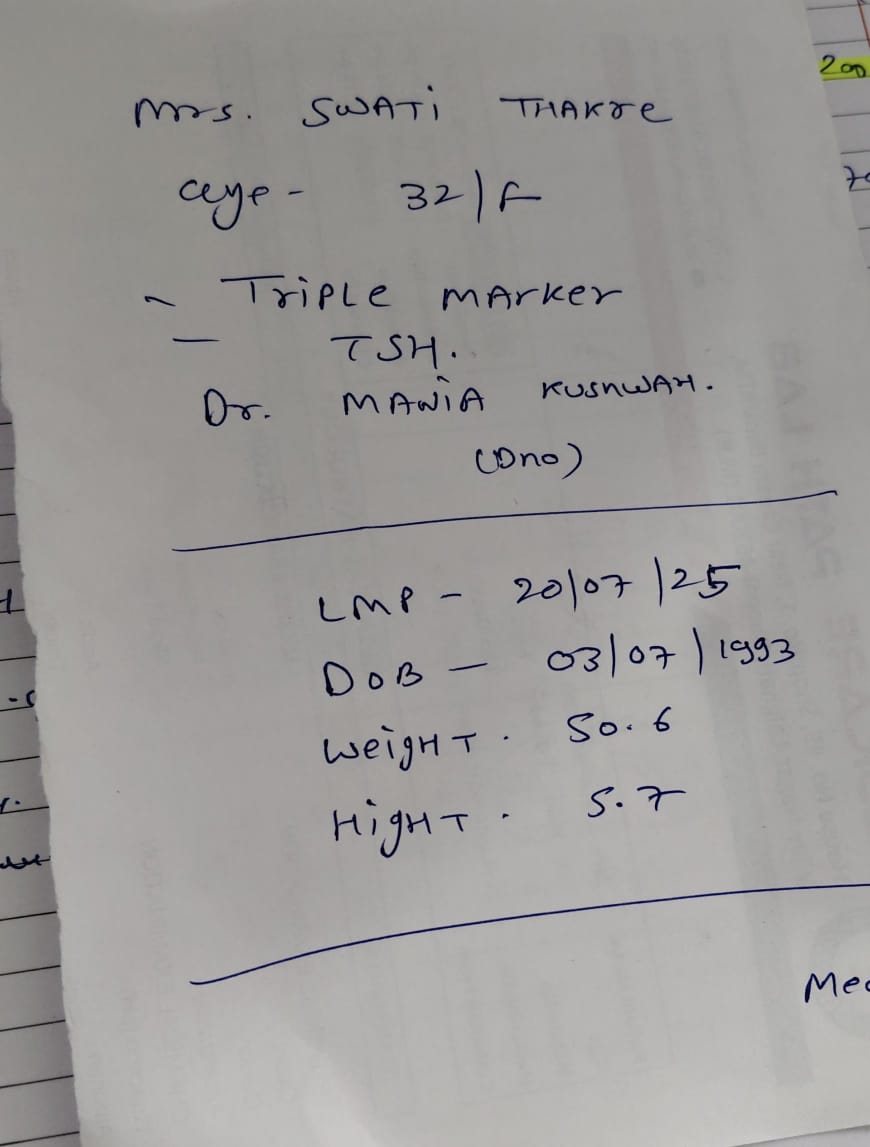 200
Mrs. SWATi THAKre
age - 32/F
- TriPLe MArker
- TSH.
Dr. MANiA KUSHWAH.
LMP - 20/07/25
DOB - 03/07/1993
WeigHT. 50.6
HigHT. 5.7